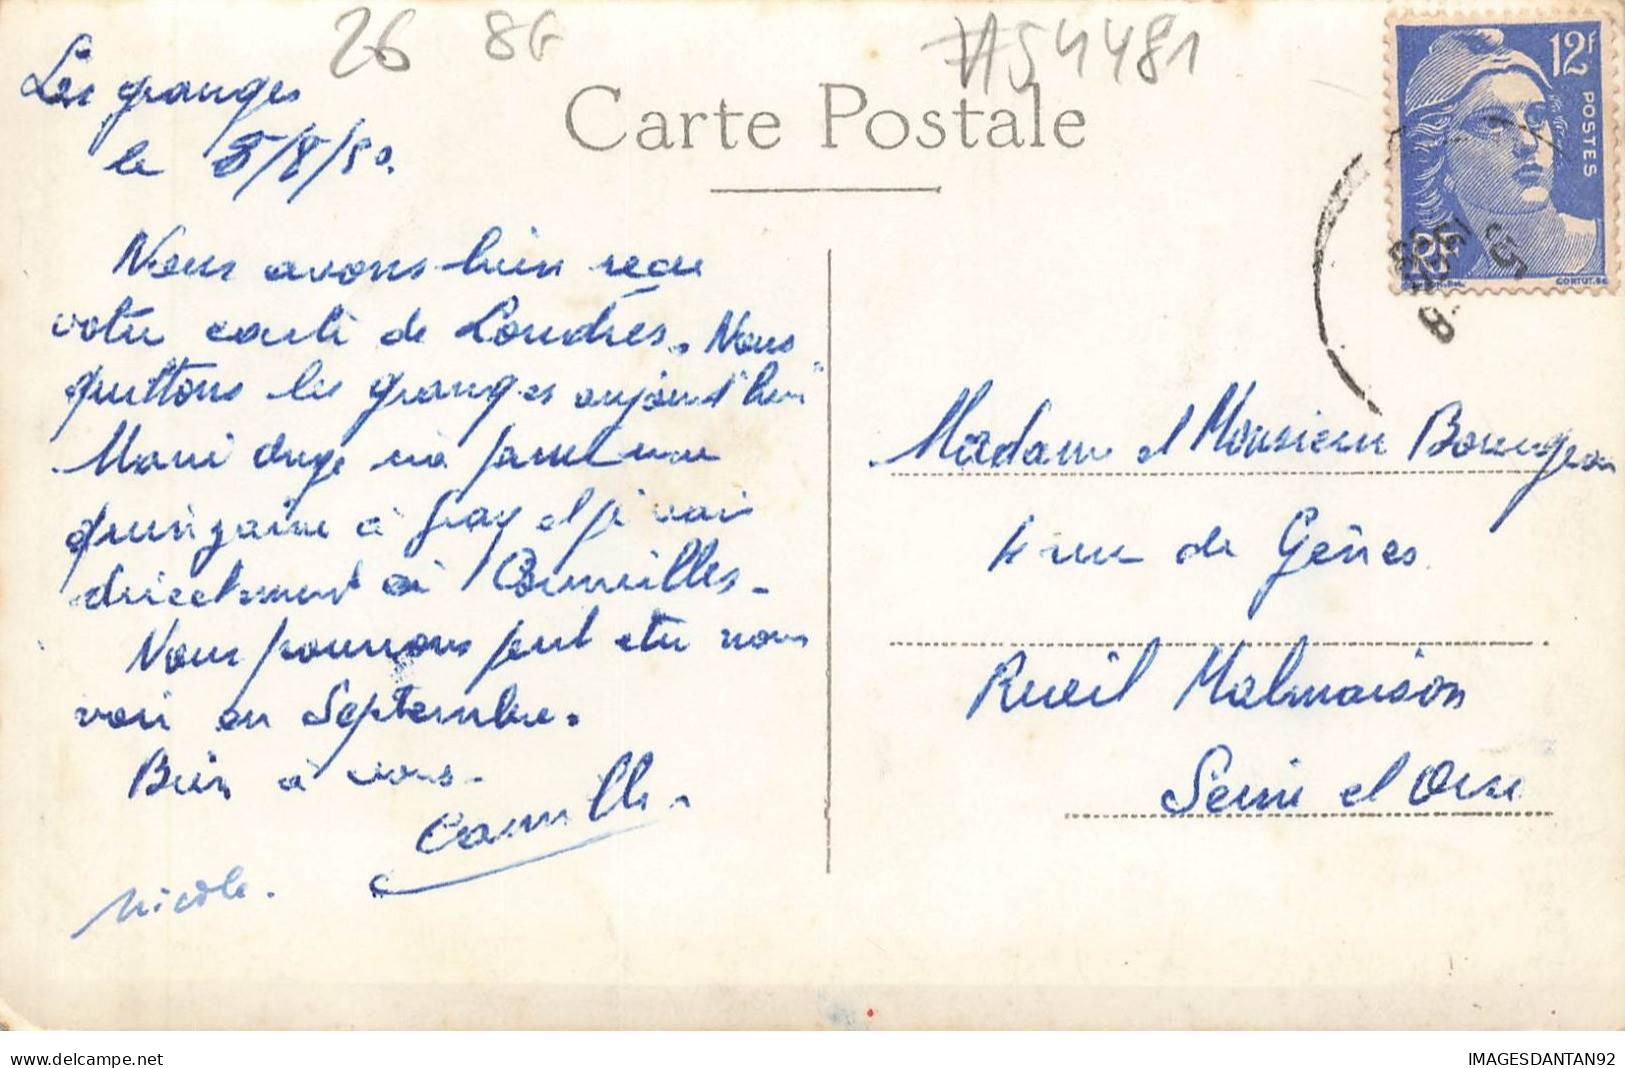 26 8G #54481
Carte Postale
12F
POSTES
RF
CORTOT.SC
Les granges
le 5/8/50.
Nous avons bien reçu
votre carte de Londres. Nous
quittons les granges aujourd'hui
Mari ange va passer une
quinzaine à Gray et je vais
directement à
Nous pourrons peut etre nous
voir en Septembre.
Bien à vous.
Camille.
Nicole.
Madame et Monsieur Bourgeon
4 rue de Gênes
Rueil Malmaison
Seine et Oise
IMAGESDANTAN92
delcampe.net